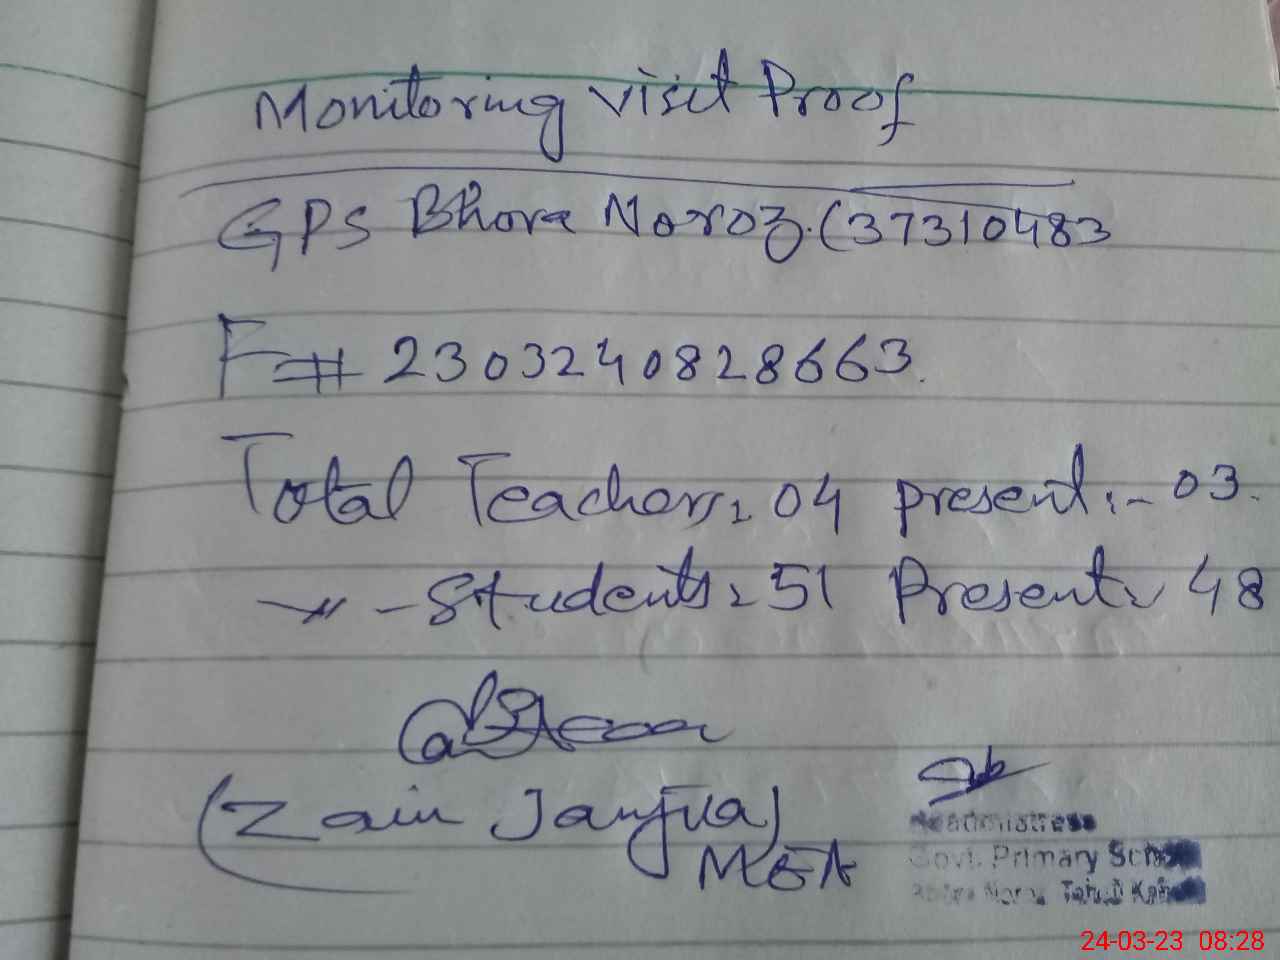 Monitoring Visit Proof
GPS Bhora Noroz.(37310483
F# 2303240828663.
Total Teachers: 04 present:- 03.
-〃- Students: 51 Present: 48
(Zain Janjua)
MEA
Headmistress
Govt. Primary School
24-03-23 08:28